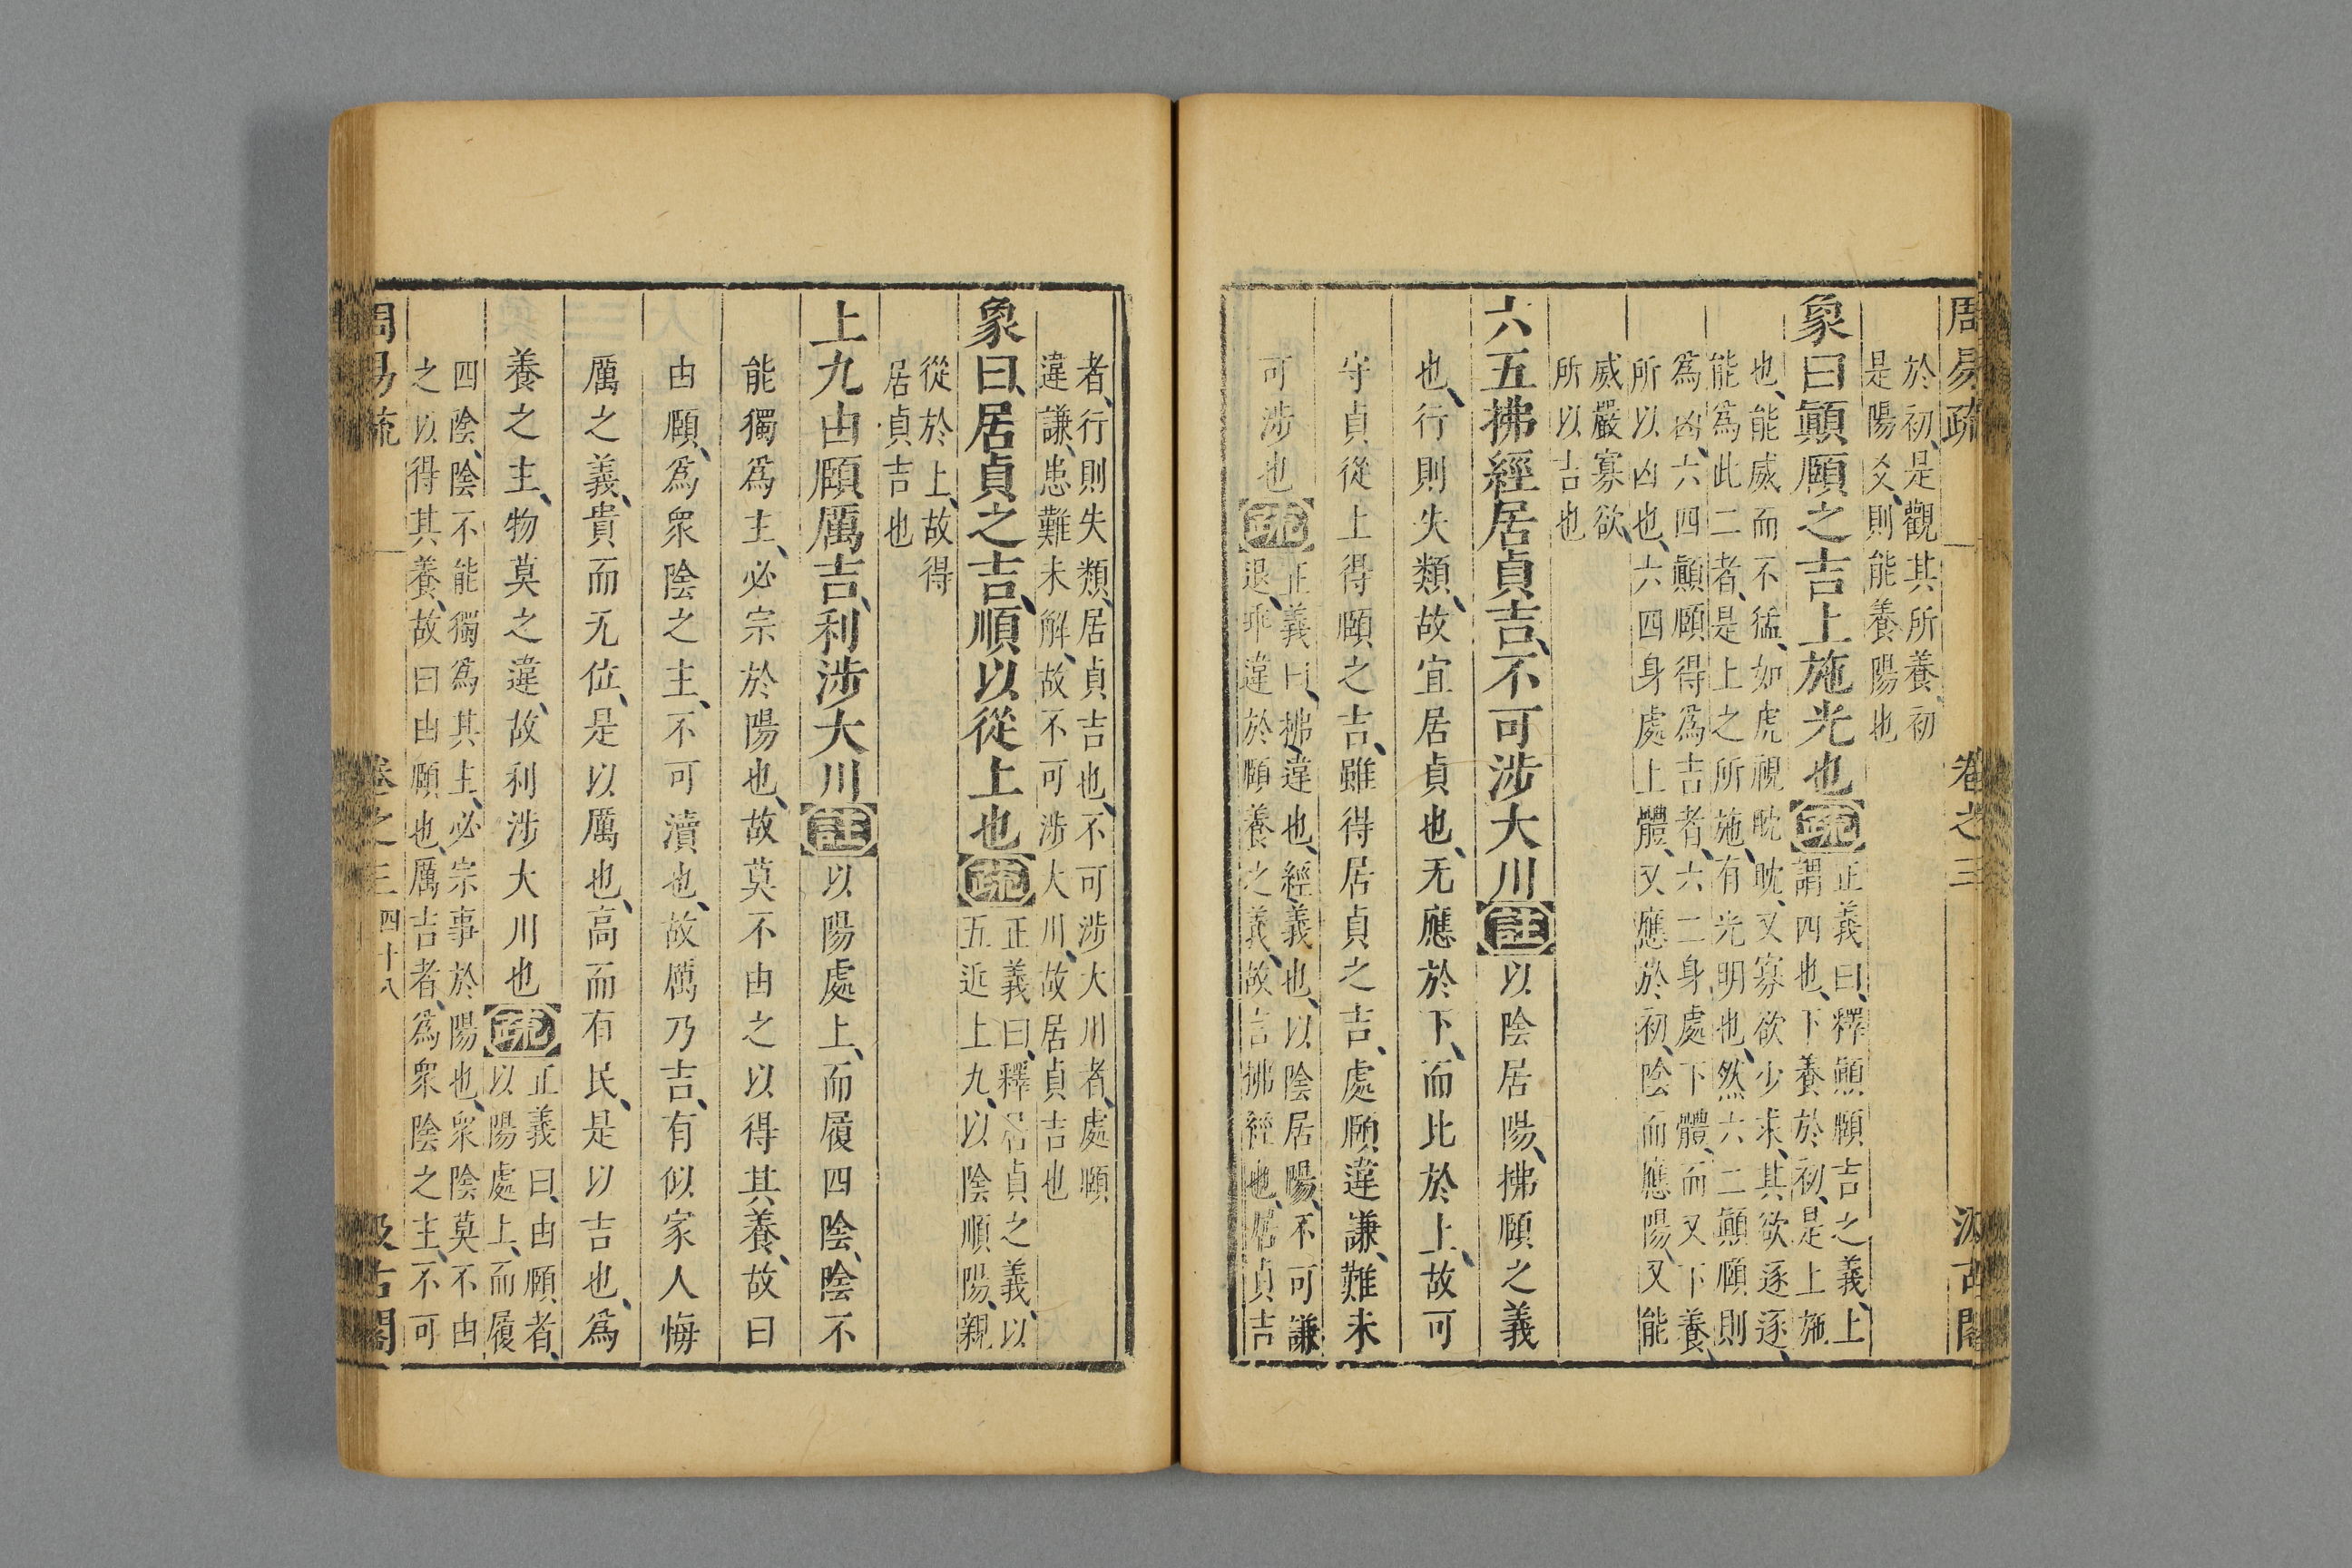 周易疏 卷之三 汲古閣
於初、是觀其所養、初
是陽爻、則能養陽也
象曰顚頤之吉上施光也疏正義曰、釋顚頤吉之義、上
謂四也、下養於初、是上施
也、能威而不猛、如虎視眈眈、又寡欲少求、其欲逐逐、
能爲此二者、是上之所施、有光明也、然六二顚頤則
爲凶、六四顚頤得爲吉者、六二身處下體、而又下養、
所以凶也、六四身處上體、又應於初、陰而應陽、又能
威嚴寡欲、
所以吉也
六五拂經居貞吉、不可涉大川註以陰居陽、拂頤之義
也、行則失類、故宜居貞也、无應於下、而比於上、故可
守貞從上得頤之吉、雖得居貞之吉、處頤違謙、難未
可涉也疏正義曰、拂、違也、經、義也、以陰居陽、不可謙
退、乖違於頤養之義、故言拂經也、居貞吉
者、行則失類、居貞吉也、不可涉大川者、處頤
違謙、患難未解、故不可涉大川、故居貞吉也
象曰、居貞之吉、順以從上也疏正義曰、釋居貞之義、以
五近上九、以陰順陽、親
從於上、故得
居貞吉也
上九由頤厲吉、利涉大川註以陽處上、而履四陰、陰不
能獨爲主、必宗於陽也、故莫不由之以得其養、故曰
由頤、爲衆陰之主、不可瀆也、故厲乃吉、有似家人悔
厲之義、貴而无位、是以厲也、高而有民、是以吉也、爲
養之主、物莫之違、故利涉大川也疏正義曰、由頤者、
以陽處上、而履
四陰、陰不能獨爲其主、必宗事於陽也、衆陰莫不由
之以得其養、故曰由頤也、厲吉者、爲衆陰之主、不可
周易疏 卷之三 四十八 汲古閣